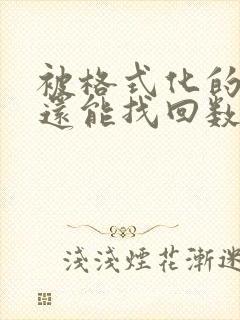 被格式化的
還能找回数
淺淺煙花漸迷